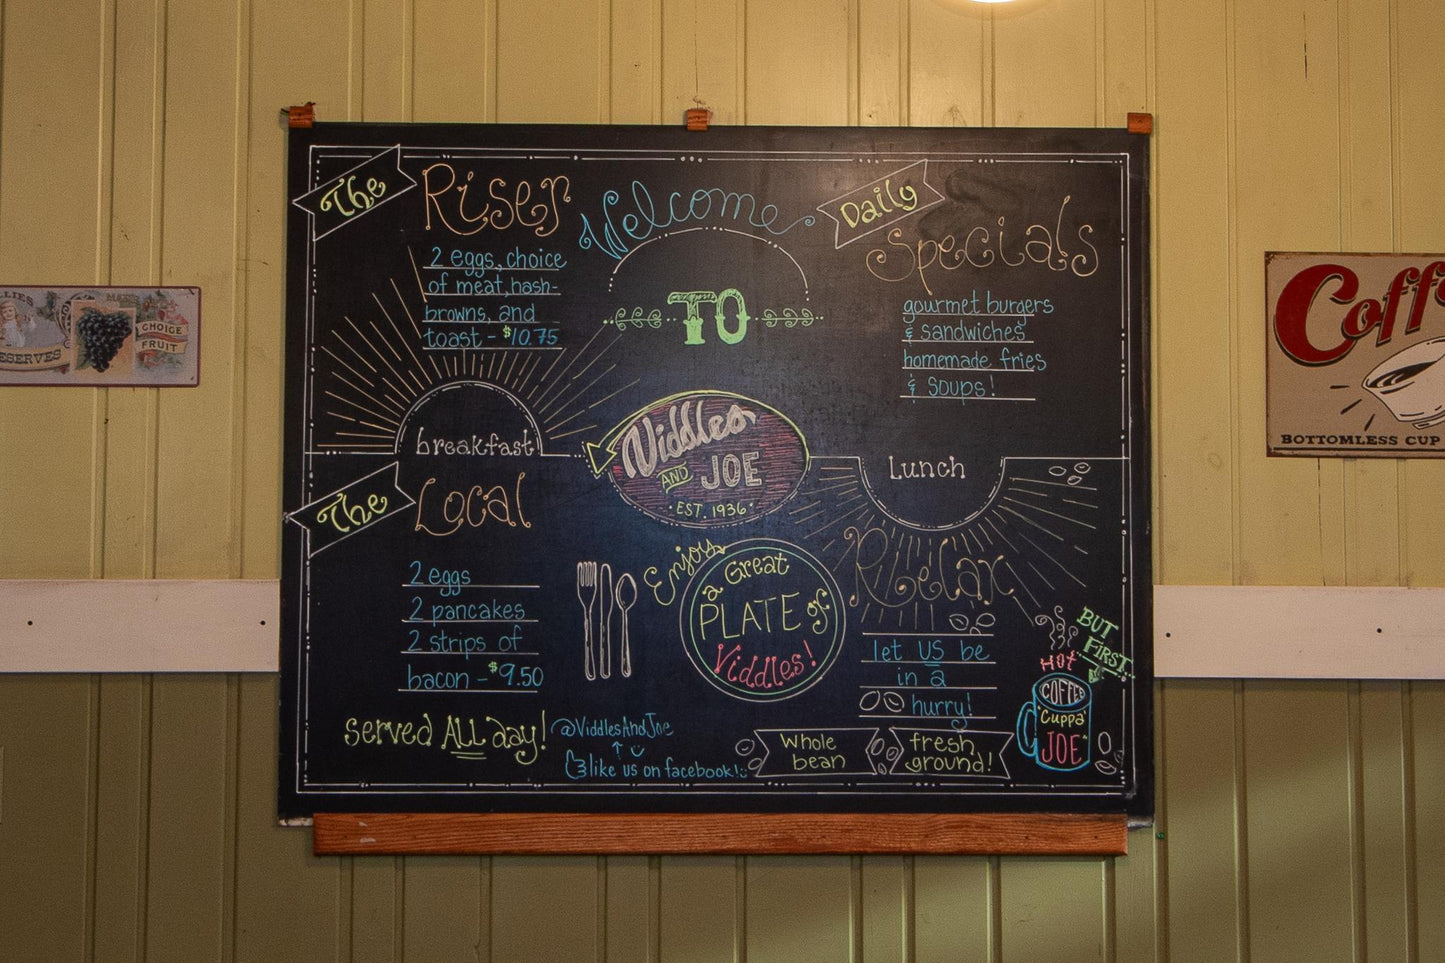 The Riser
2 eggs, choice
of meat, hash-
browns, and
toast - $10.75
breakfast
The Local
2 eggs
2 pancakes
2 strips of
bacon - $9.50
served ALL day!
Welcome
TO
Viddles
AND JOE
· EST. 1936 ·
Enjoy
a Great
PLATE of
Viddles!
@ViddlesAndJoe
like us on facebook!
Daily
Specials
gourmet burgers
& sandwiches
homemade fries
& soups!
Lunch
Relax
let US be
in a
hurry!
Whole
bean
fresh
ground!
BUT
FIRST..
HOT
COFFEE
"Cuppa"
JOE
CHOICE
FRUIT
Coff
BOTTOMLESS CUP